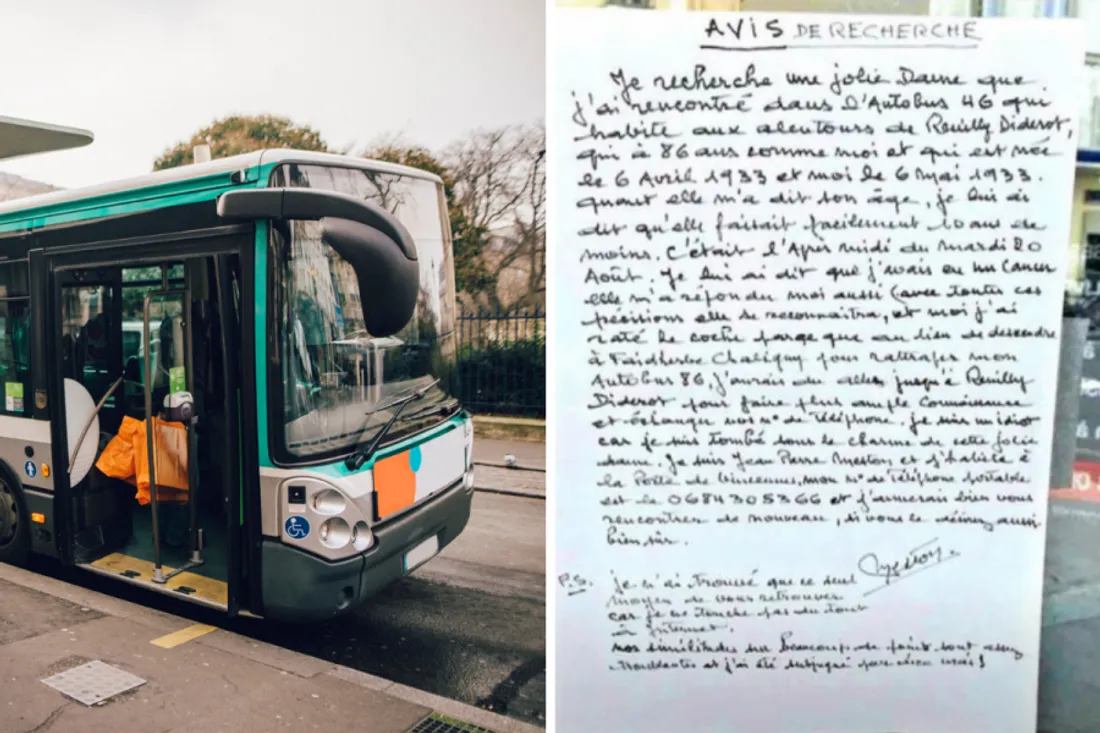 AVIS DE RECHERCHE
Je recherche une jolie Dame que
j'ai rencontré dans l'Autobus 46 qui
habite aux alentours de Reuilly Diderot,
qui à 86 ans comme moi et qui est née
le 6 Avril 1933 et moi le 6 Mai 1933.
Quant elle m'a dit son âge, je lui ai
dit qu'elle faisait facilement 10 ans de
moins. C'était l'Après midi du mardi 20
Août. Je lui ai dit que j'avais eu un Cancer
elle m'a répondu moi aussi (avec toutes ces
précisions elle se reconnaitra, et moi j'ai
raté le coche parce que au lieu de descendre
à Faidherbe Chaligny pour rattraper mon
Autobus 86, j'aurais du aller jusqu'à Reuilly
Diderot pour faire plus ample connaissance
et échanger nos n° de Téléphone. Je suis un idiot
car je suis tombé sous le charme de cette jolie
dame. Je suis Jean Pierre Meston et j'habite à
la Porte de Vincennes, mon N° de Téléphone portable
est le 0684305366 et j'aimerais bien vous
rencontrer de nouveau, si vous le désirez aussi
bien sûr.
Meston
P.S. je n'ai trouvé que ce seul
moyen de vous retrouver
car je ne touche pas du tout
à internet.
nos similitudes sur Beaucoup de points sont assez
troublantes et j'ai été subjugué par